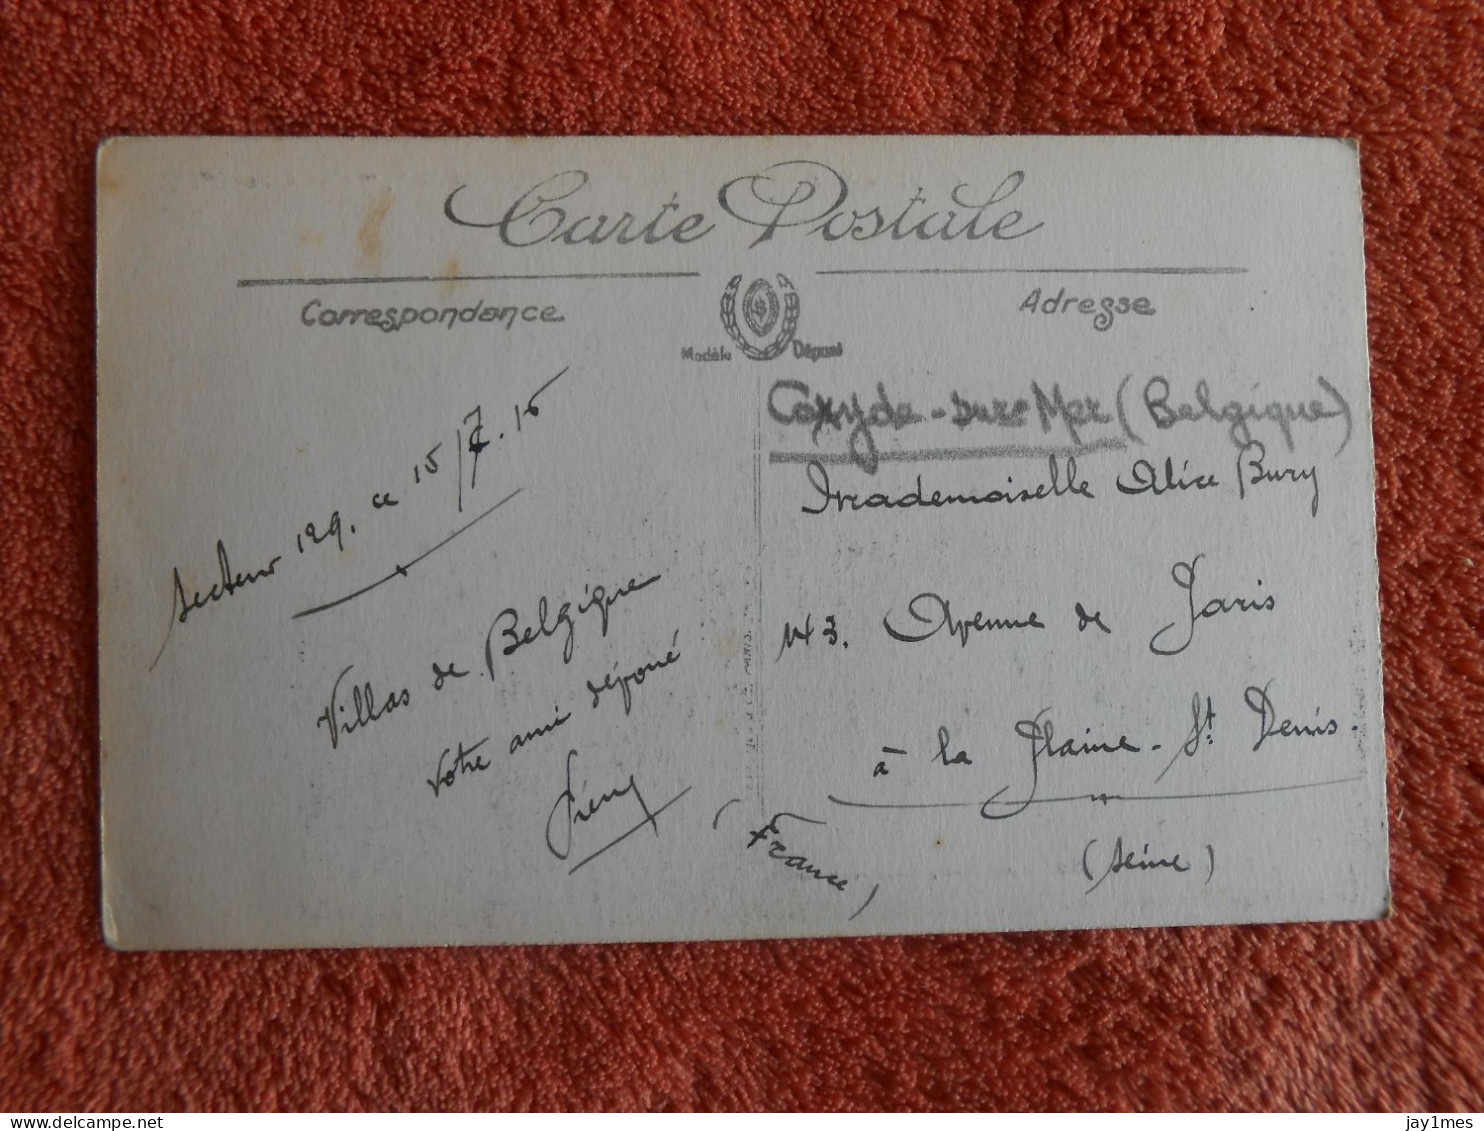 Carte Postale
Correspondance
Adresse
Modèle Déposé
Secteur 129. ce 15/7.16
Villas de Belgique
Votre ami dépoué
Coxyde-sur-Mer (Belgique)
Mademoiselle Alice Bury
143. Avenue de Paris
à la Plaine-St Denis.
(Seine)
(France)
delcampe.net
jay1mes